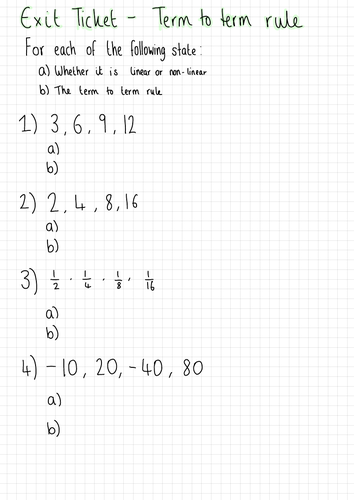 Exit Ticket - Term to term rule
For each of the following state:
a) Whether it is linear or non-linear
b) The term to term rule
1) 3, 6, 9, 12
a)
b)
2) 2, 4, 8, 16
a)
b)
3) 1/2, 1/4, 1/8, 1/16
a)
b)
4) -10, 20, -40, 80
a)
b)